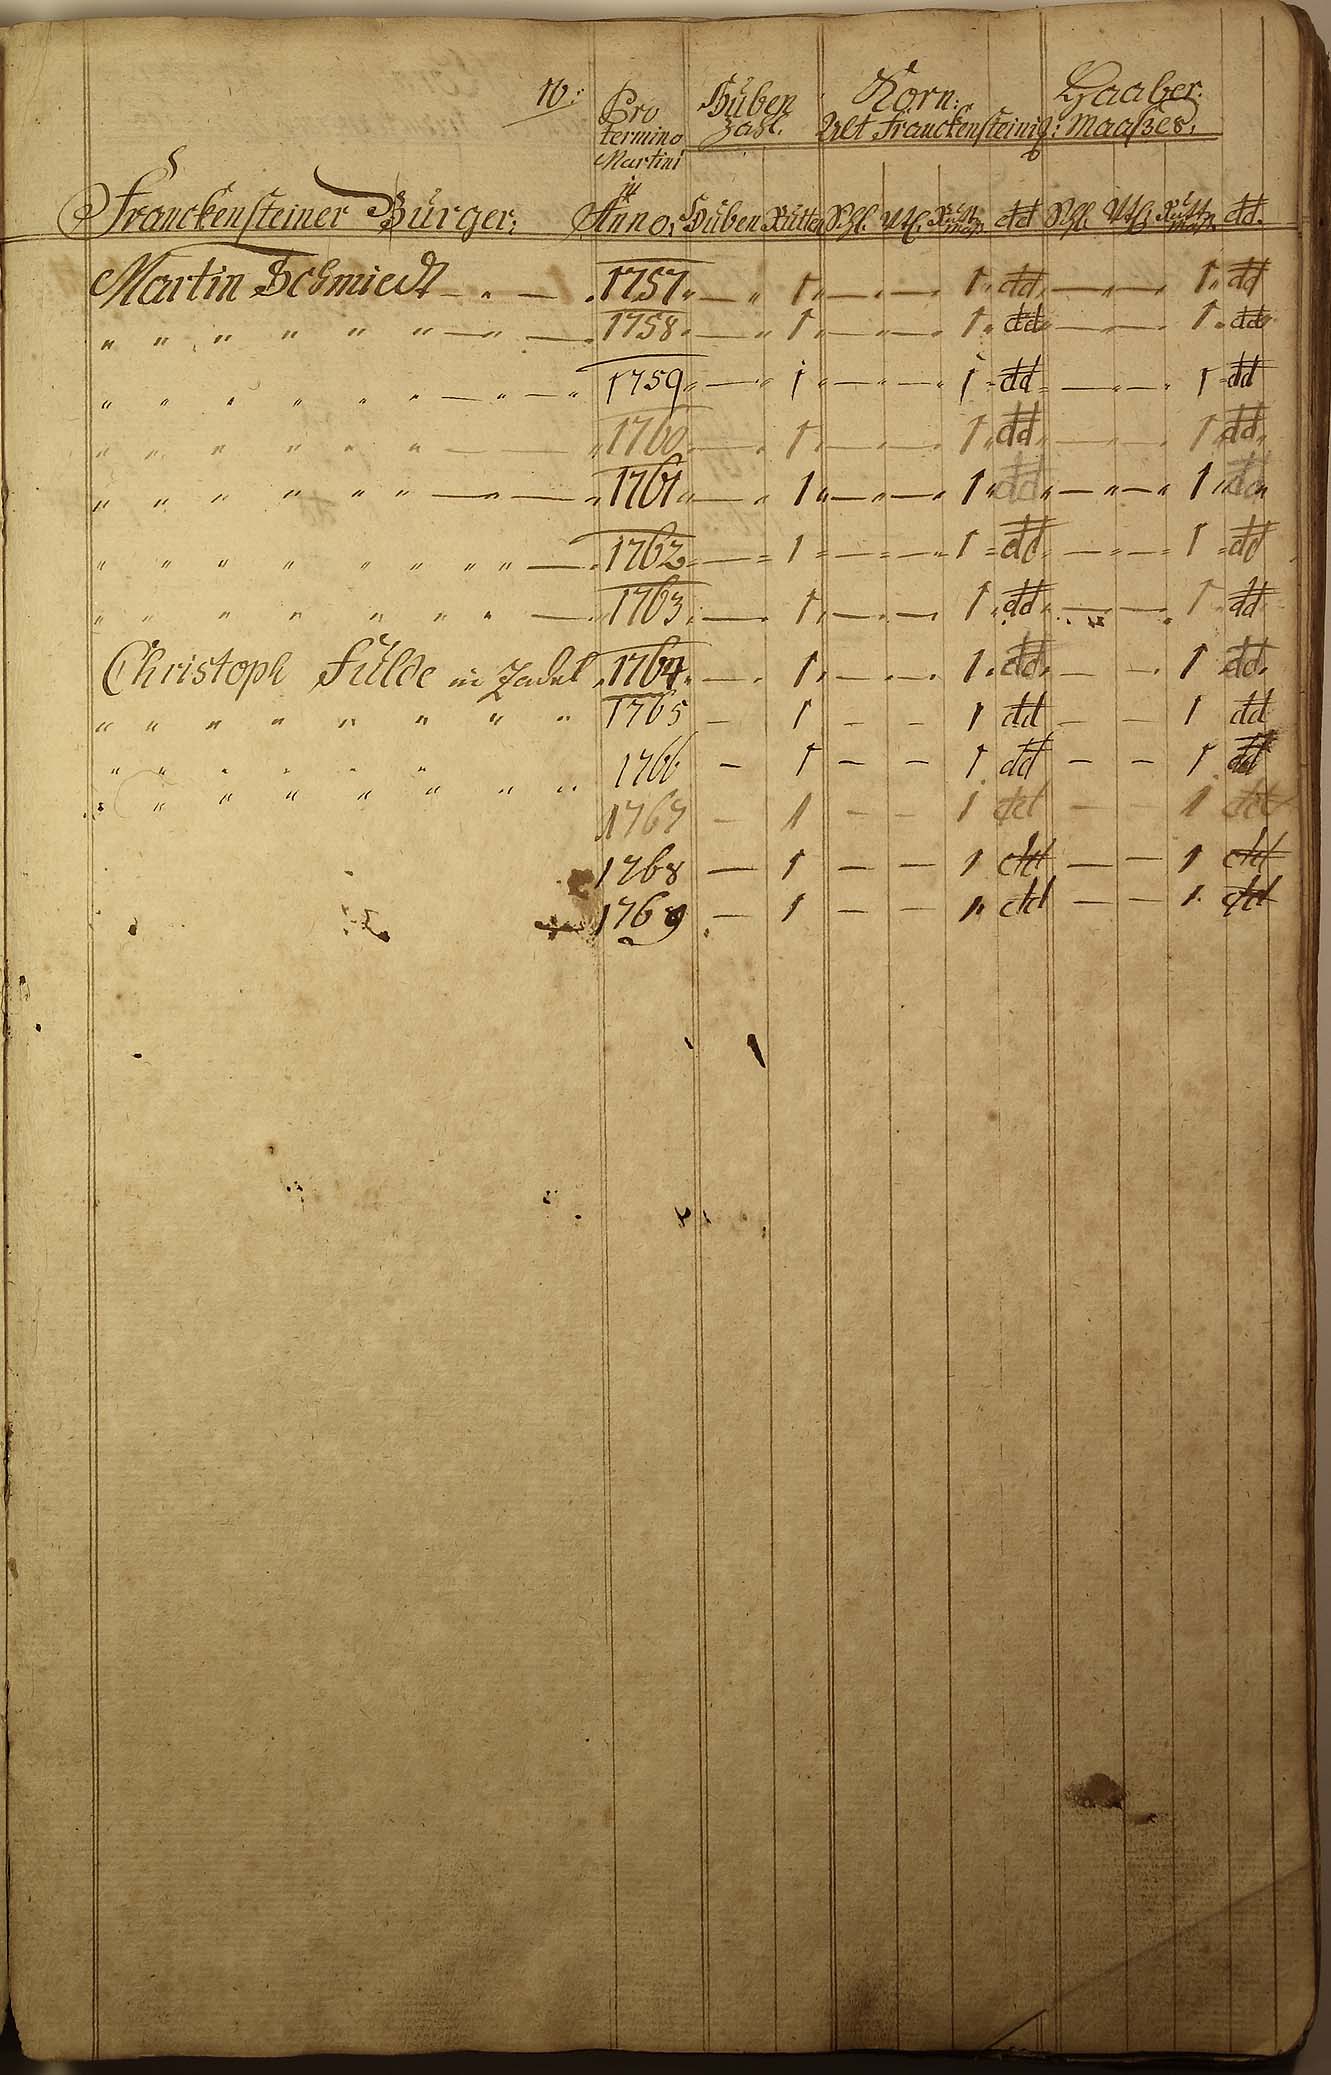 16:
Pro termino Martini in Anno, Huben Zahl. Korn: Haaber:
Alt Franckensteinig: Maaßes.
Franckensteiner Bürger: Huben Rutten Schl. Vtl. dd Schl. Vtl. dd.
Martin Schmiedt — " — 1757 " — " 1 " — " — 1 " dd " — " — 1 " dd
" " " " " " — " — 1758 " — " 1 " — " — 1 " dd " — " — 1 " dd
" " " " " " — " — " 1759 " — " 1 " — " — 1 " dd " — " — " 1 " dd
" " " " " " — — " 1760 " — " 1 " — " — 1 " dd " — " — 1 " dd "
" " " " " " — " — " 1761 " — " 1 " — " — " 1 " dd " — " — " 1 " dd "
" " " " " " " " — " 1762 " — " 1 " — " — " 1 " dd " — " — " 1 " dd
" " " " " " " — " 1763 " — " 1 " — " — " 1 " dd " — " — " 1 " dd
Christoph Fulde in Zadel " 1764 " — " 1 " — " — " 1 " dd " — — " 1 dd "
" " " " " " " " 1765 — 1 — — 1 dd — — 1 dd
" " " " " " 1766 — 1 — — 1 dd — — 1 dd
" " " " " " " 1767 — 1 — — 1 dd — — 1 dd
1768 — 1 — — 1 dd — — 1 dd
1769 — 1 — — 1 dd — — 1 dd